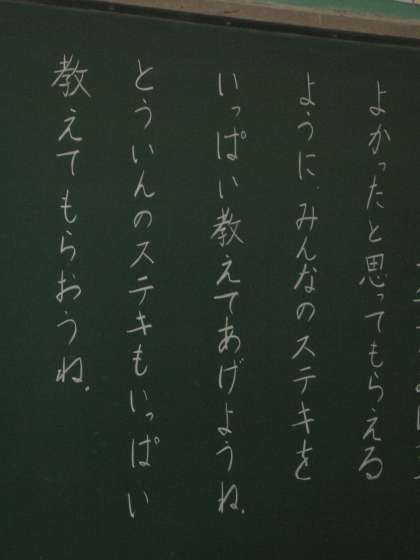 よかったと思ってもらえる
ように、みんなのステキを
いっぱい教えてあげようね。
とういんのステキもいっぱい
教えてもらおうね。